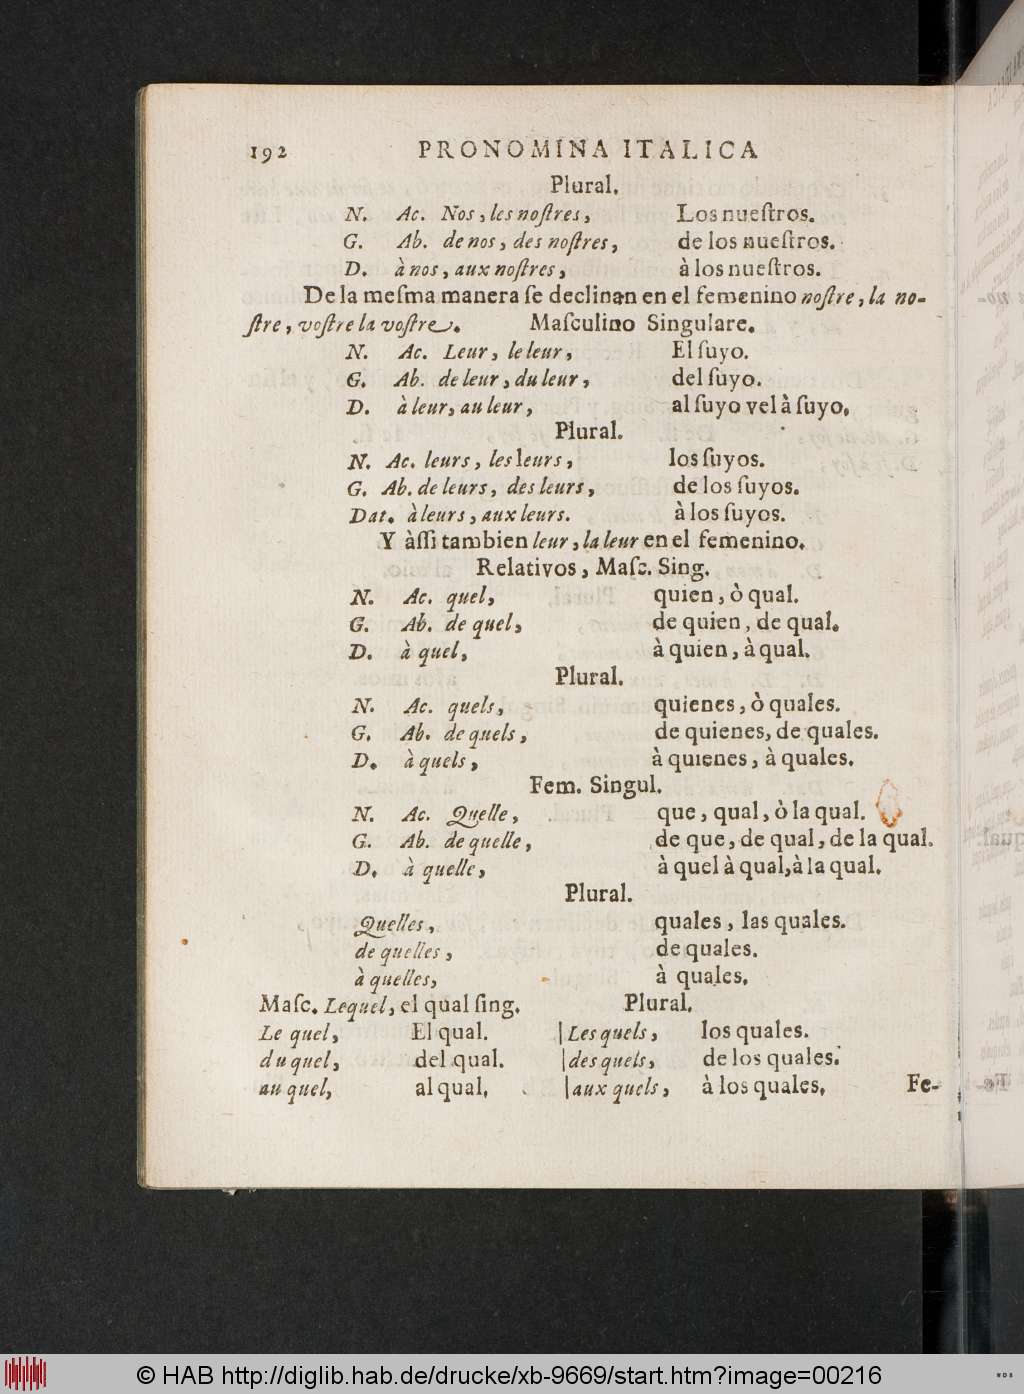 192 PRONOMINA ITALICA
Plural.
N. Ac. Nos, les noſtres, Los nueſtros.
G. Ab. de nos, des noſtres, de los nueſtros.
D. à nos, aux noſtres, à los nueſtros.
De la meſma manera ſe declinan en el femenino noſtre, la no-
ſtre, voſtre la voſtre. Maſculino Singulare.
N. Ac. Leur, le leur, El ſuyo.
G. Ab. de leur, du leur, del ſuyo.
D. à leur, au leur, al ſuyo vel à ſuyo.
Plural.
N. Ac. leurs, les leurs, los ſuyos.
G. Ab. de leurs, des leurs, de los ſuyos.
Dat. à leurs, aux leurs. à los ſuyos.
Y àſſi tambien leur, la leur en el femenino.
Relativos, Maſc. Sing.
N. Ac. quel, quien, ò qual.
G. Ab. de quel, de quien, de qual.
D. à quel, à quien, à qual.
Plural.
N. Ac. quels, quienes, ò quales.
G. Ab. de quels, de quienes, de quales.
D. à quels, à quienes, à quales.
Fem. Singul.
N. Ac. Quelle, que, qual, ò la qual.
G. Ab. de quelle, de que, de qual, de la qual.
D. à quelle, à quel à qual, à la qual.
Plural.
Quelles, quales, las quales.
de quelles, de quales.
à quelles, à quales.
Maſc. Lequel, el qual ſing. Plural.
Le quel, El qual. | Les quels, los quales.
du quel, del qual. | des quels, de los quales.
au quel, al qual, | aux quels, à los quales, Fe-
© HAB http://diglib.hab.de/drucke/xb-9669/start.htm?image=00216